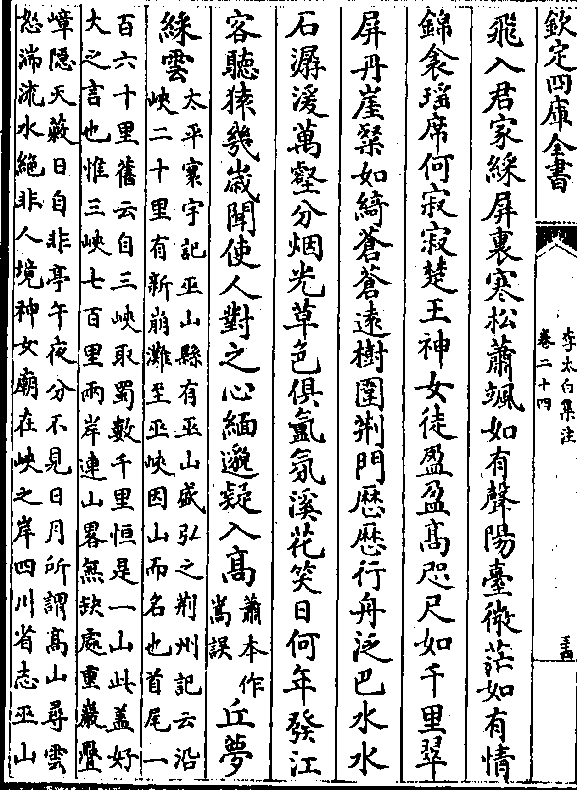 欽定四庫全書
李太白集注
卷二十四
飛入君家綵屏裏寒松蕭颯如有聲陽臺微茫如有情
錦衾瑶席何寂寂楚王神女徒盈盈高咫尺如千里翠
屏丹崖粲如綺蒼蒼遠樹圍荆門歴歴行舟泛巴水水
石潺湲萬壑分烟光草色俱氳氛溪花笑日何年發江
客聽猿幾嵗聞使人對之心緬邈疑入高蕭本作嵩誤丘夢
綵雲太平寰宇記巫山縣有巫山盛弘之荆州記云沿
峽二十里有新崩灘至巫峽因山而名也首尾一
百六十里舊云自三峽取蜀數千里恒是一山此盖好
大之言也惟三峽七百里兩岸連山畧無缺處重巖疊
嶂隠天蔽日自非亭午夜分不見日月所謂高山尋雲
怒湍流水絶非人境神女廟在峽之岸四川省志巫山